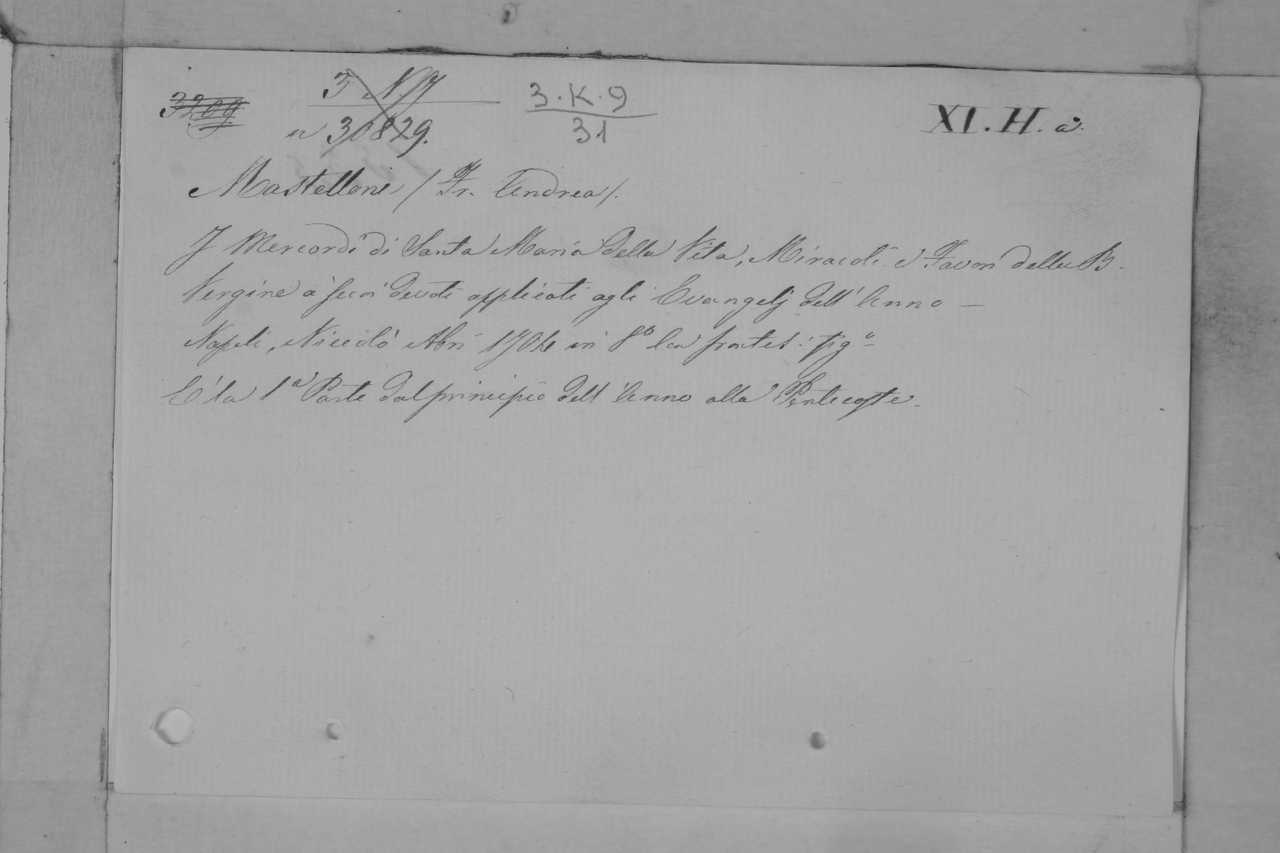 3209 3 N 7 3.K.9 XI.H.a.
n 30829. 31
Mastelloni / Fr. Andrea /.
I Mercordì di Santa Maria della Vita, Miracoli e Favori della B.
Vergine a suoi devoti applicati agli Evangelj dell' Anno —
Napoli, Nicolò Abri 1704 in 8º
È la 1ª Parte dal principio dell' Anno alla Pentecoste.